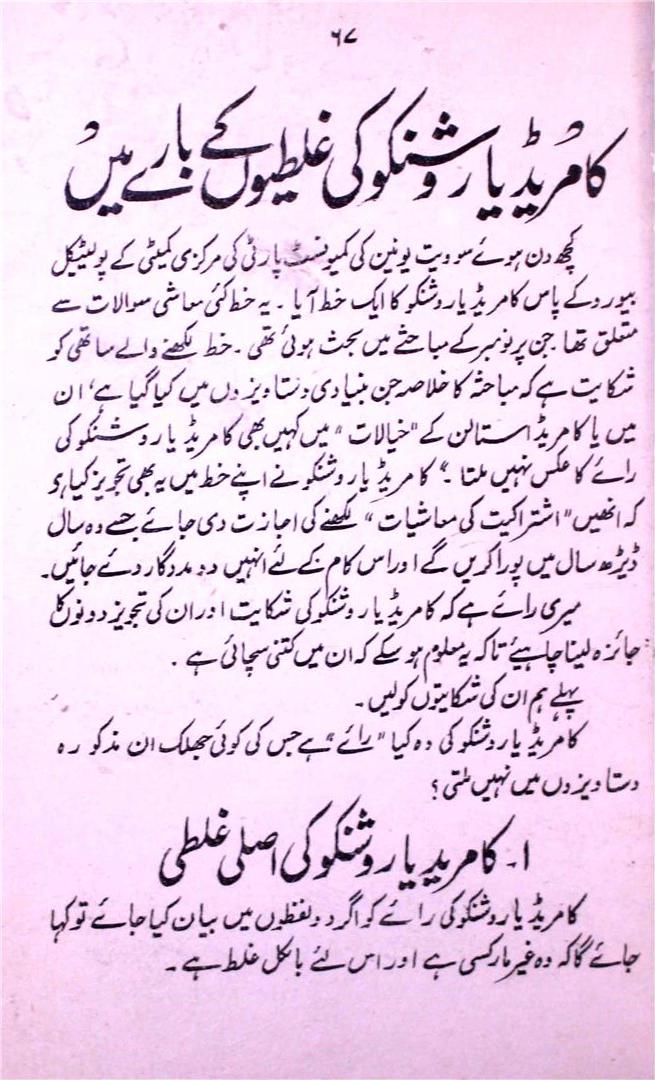 ۶۷
کامریڈ یاروشنکو کی غلطیوں کے بارے میں
کچھ دن ہوئے سوویت یونین کی کمیونسٹ پارٹی کی مرکزی کمیٹی کے پولیٹیکل
بیورو کے پاس کامریڈ یاروشنکو کا ایک خط آیا ۔ یہ خط کئی معاشی سوالات سے
متعلق تھا جن پر نومبر کے مباحثے میں بحث ہوئی تھی ۔ خط لکھنے والے ساتھی کو
شکایت ہے کہ مباحثہ کا خلاصہ جن بنیادی دستاویزوں میں کیا گیا ہے، ان
میں یا کامریڈ استالن کے "خیالات" میں کہیں بھی کامریڈ یاروشنکو کی
رائے کا عکس نہیں ملتا ۔" کامریڈ یاروشنکو نے اپنے خط میں یہ بھی تجویز کیا ہو
کہ انھیں "اشتراکیت کی معاشیات" لکھنے کی اجازت دی جائے جسے وہ سال
ڈیڑھ سال میں پورا کریں گے اور اس کام کے لئے انہیں دو مددگار دئے جائیں۔
میری رائے ہے کہ کامریڈ یاروشنکو کی شکایت اور ان کی تجویز دونوں کا
جائزہ لینا چاہیئے تاکہ یہ معلوم ہو سکے کہ ان میں کتنی سچائی ہے ۔
پہلے ہم ان کی شکایتوں کو لیں ۔
کامریڈ یاروشنکو کی وہ کیا "رائے" ہے جس کی کوئی جھلک ان مذکورہ
دستاویزوں میں نہیں ملتی ؟
۱۔ کامریڈ یاروشنکو کی اصلی غلطی
کامریڈ یاروشنکو کی رائے کو اگر دو لفظوں میں بیان کیا جائے تو کہا
جائے گا کہ وہ غیر مارکسی ہے اور اس لئے بالکل غلط ہے ۔